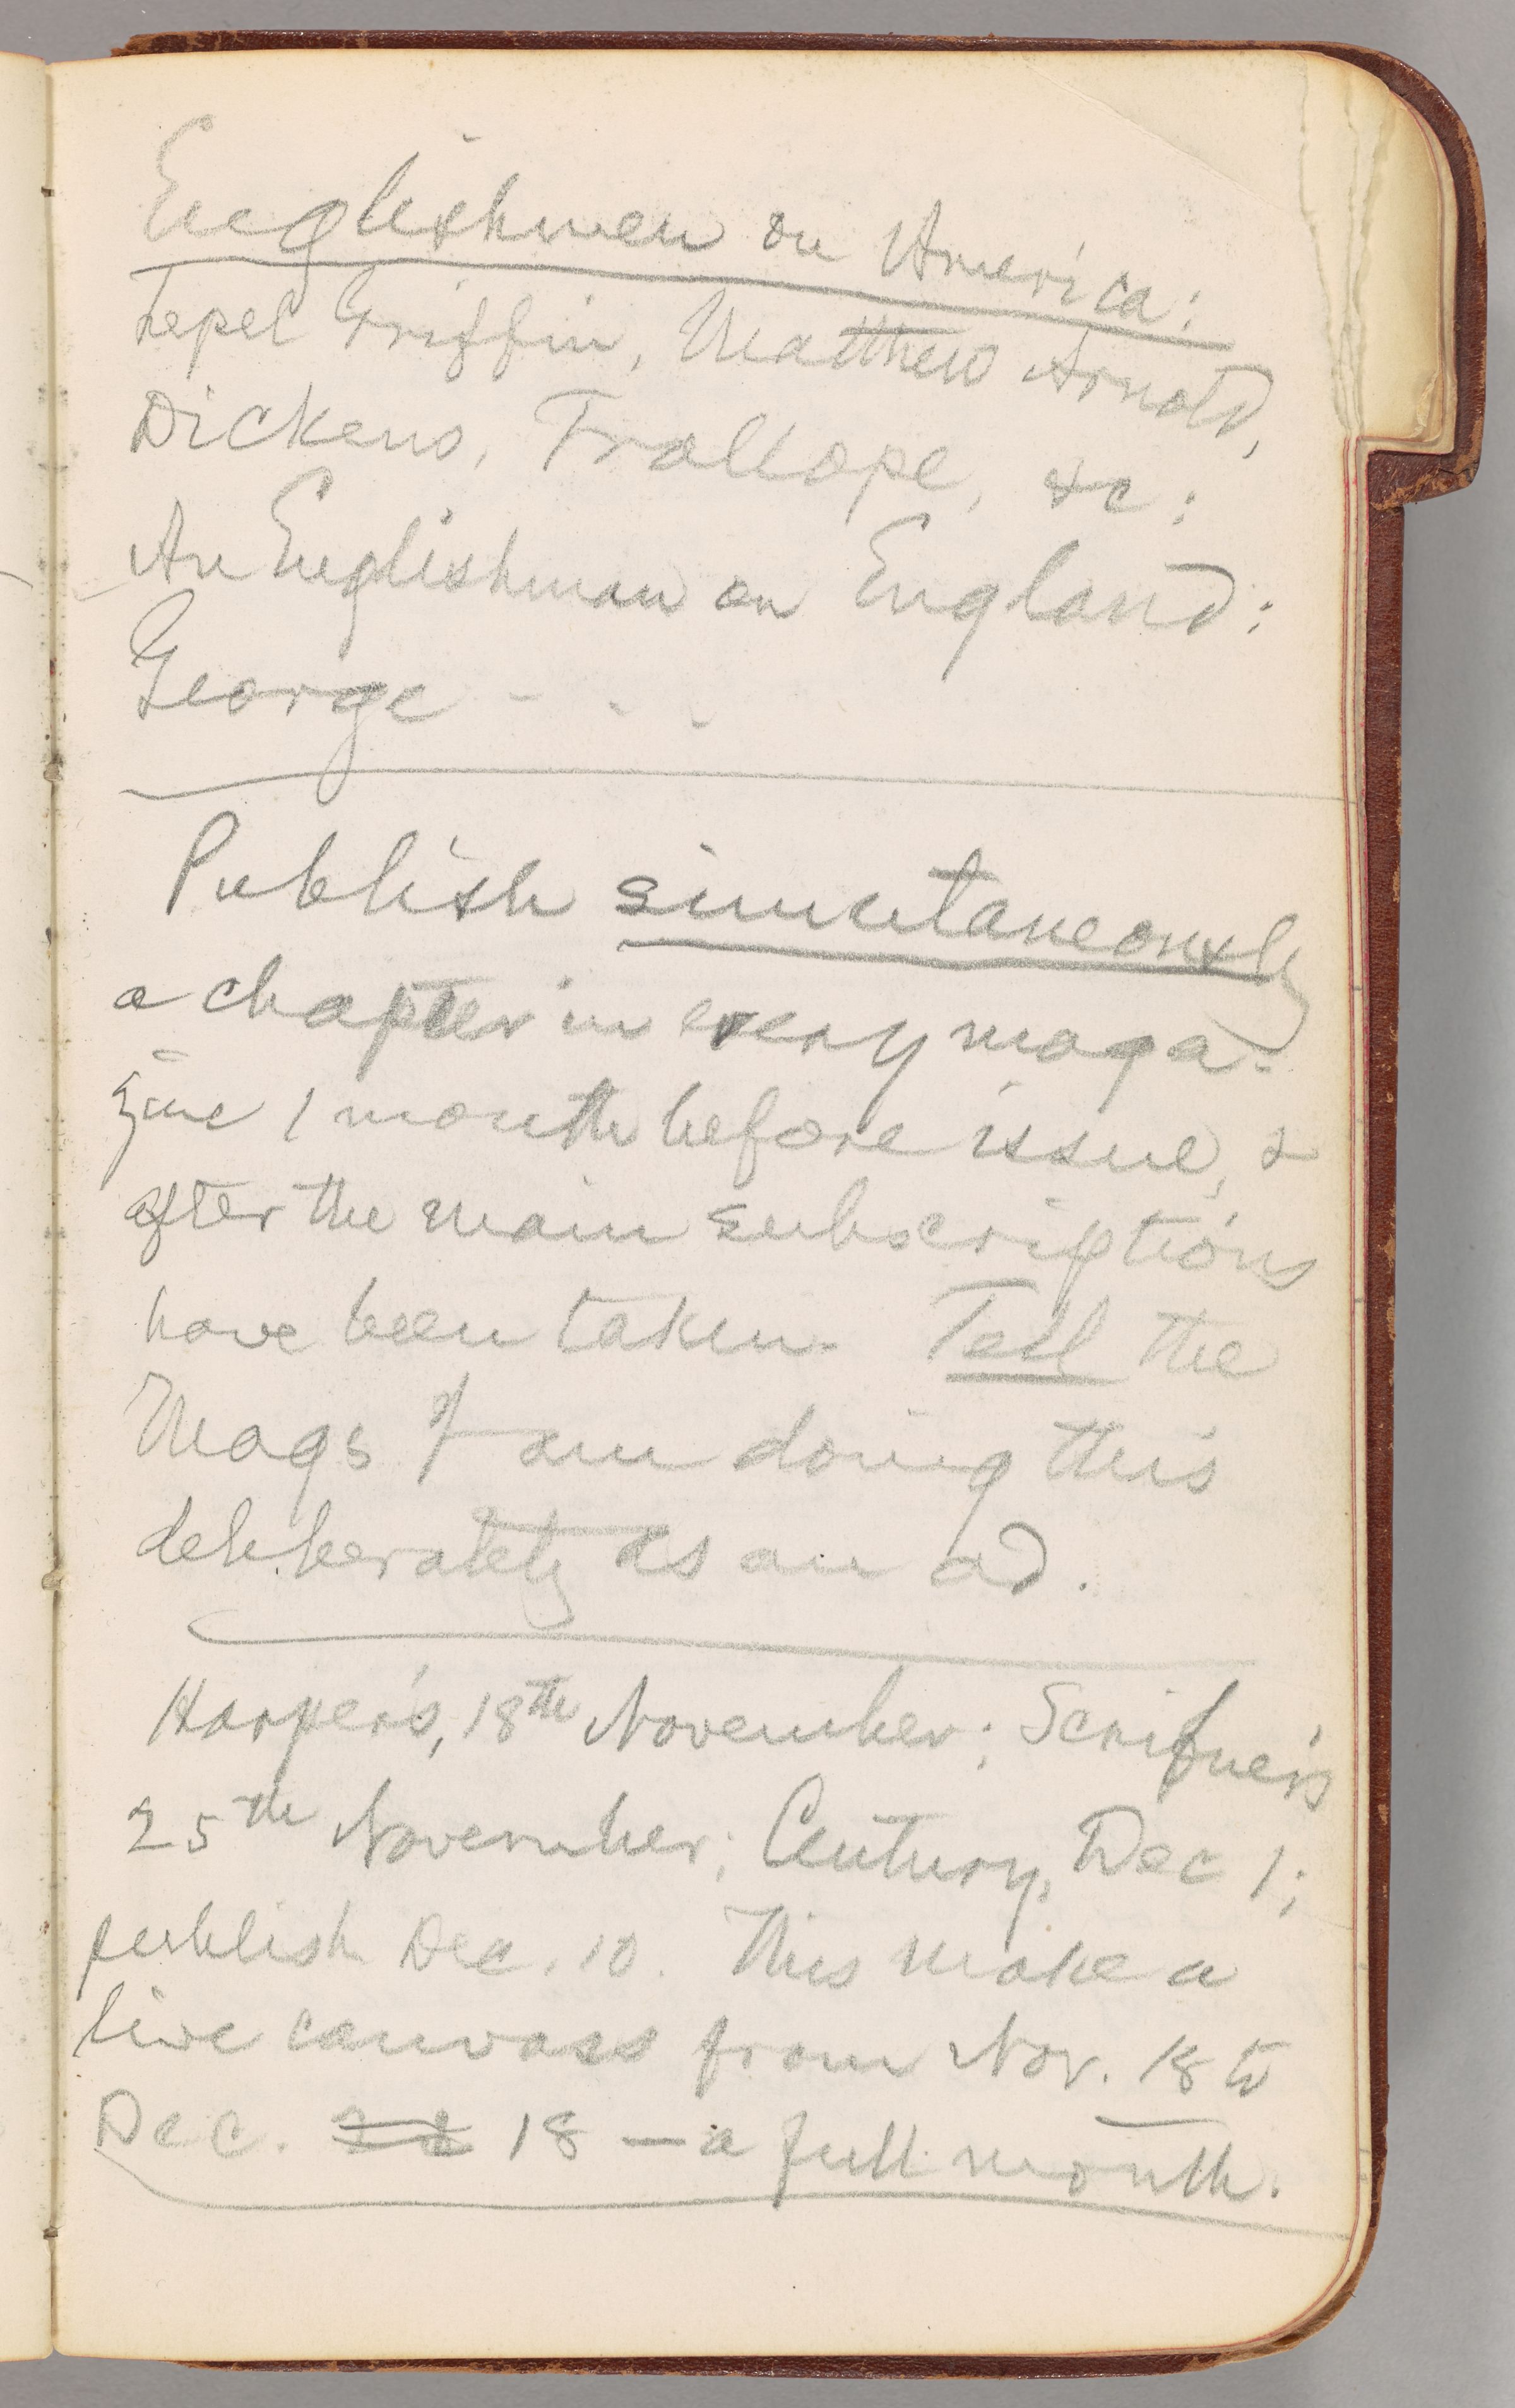 Englishmen on America:
Lepel Griffin, Matthew Arnold,
Dickens, Trollope, &c:
An Englishman on England:
George - - -
Publish simultaneously
a chapter in every maga-
zine 1 month before issue, &
after the main subscriptions
have been taken. Tell the
Mags I am doing this
deliberately as an ad.
Harper's, 18th November; Scribner's
25th November; Century, Dec 1;
publish Dec. 10. This make a
live canvass from Nov. 18 to
Dec. 18 — a full month.